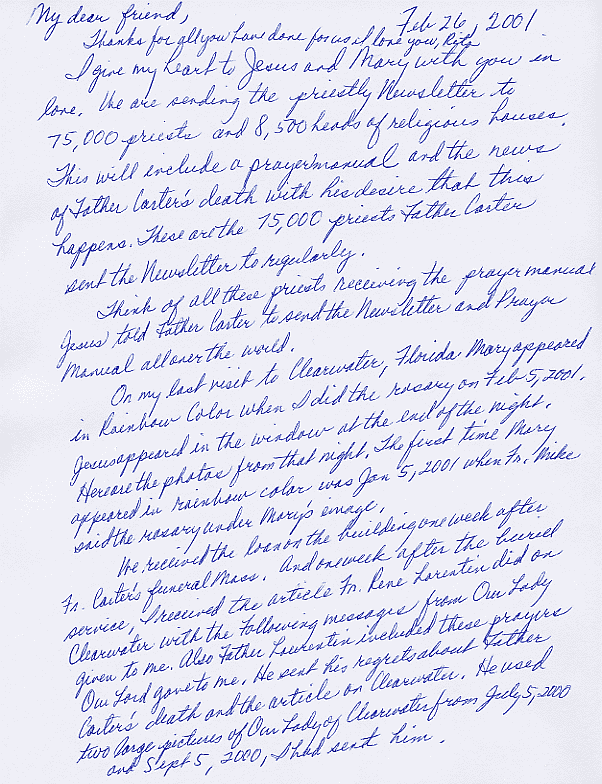 My dear friend,
Feb 26, 2001
Thanks for all you have done for us. I love you, Rita
I give my heart to Jesus and Mary with you in
love. We are sending the priestly Newsletter to
75,000 priests and 8,500 heads of religious houses.
This will include a prayer manual and the news
of Father Carter's death with his desire that this
happens. These are the 75,000 priests Father Carter
sent the Newsletter to regularly.
Think of all these priests receiving the prayer manual
Jesus told Father Carter to send the Newsletter and Prayer
Manual all over the world.
On my last visit to Clearwater, Florida Mary appeared
in Rainbow Color when I did the rosary on Feb 5, 2001.
Jesus appeared in the window at the end of the night.
Here are the photos from that night. The first time Mary
appeared in rainbow color was Jan 5, 2001 when Fr. Mike
said the rosary under Mary's image.
We recieved the loan on the building one week after
Fr. Carter's funeral Mass. And one week after the buried
service, I received the article Fr. Rene Lorentin did on
Clearwater with the following messages from Our Lady
given to me. Also Father Lourentin included these prayers
Our Lord gave to me. He sent his regrets about Father
Carter's death and the article on Clearwater. He used
two large pictures of Our Lady of Clearwater from July 5, 2000
and Sept 5, 2000, I had sent him.